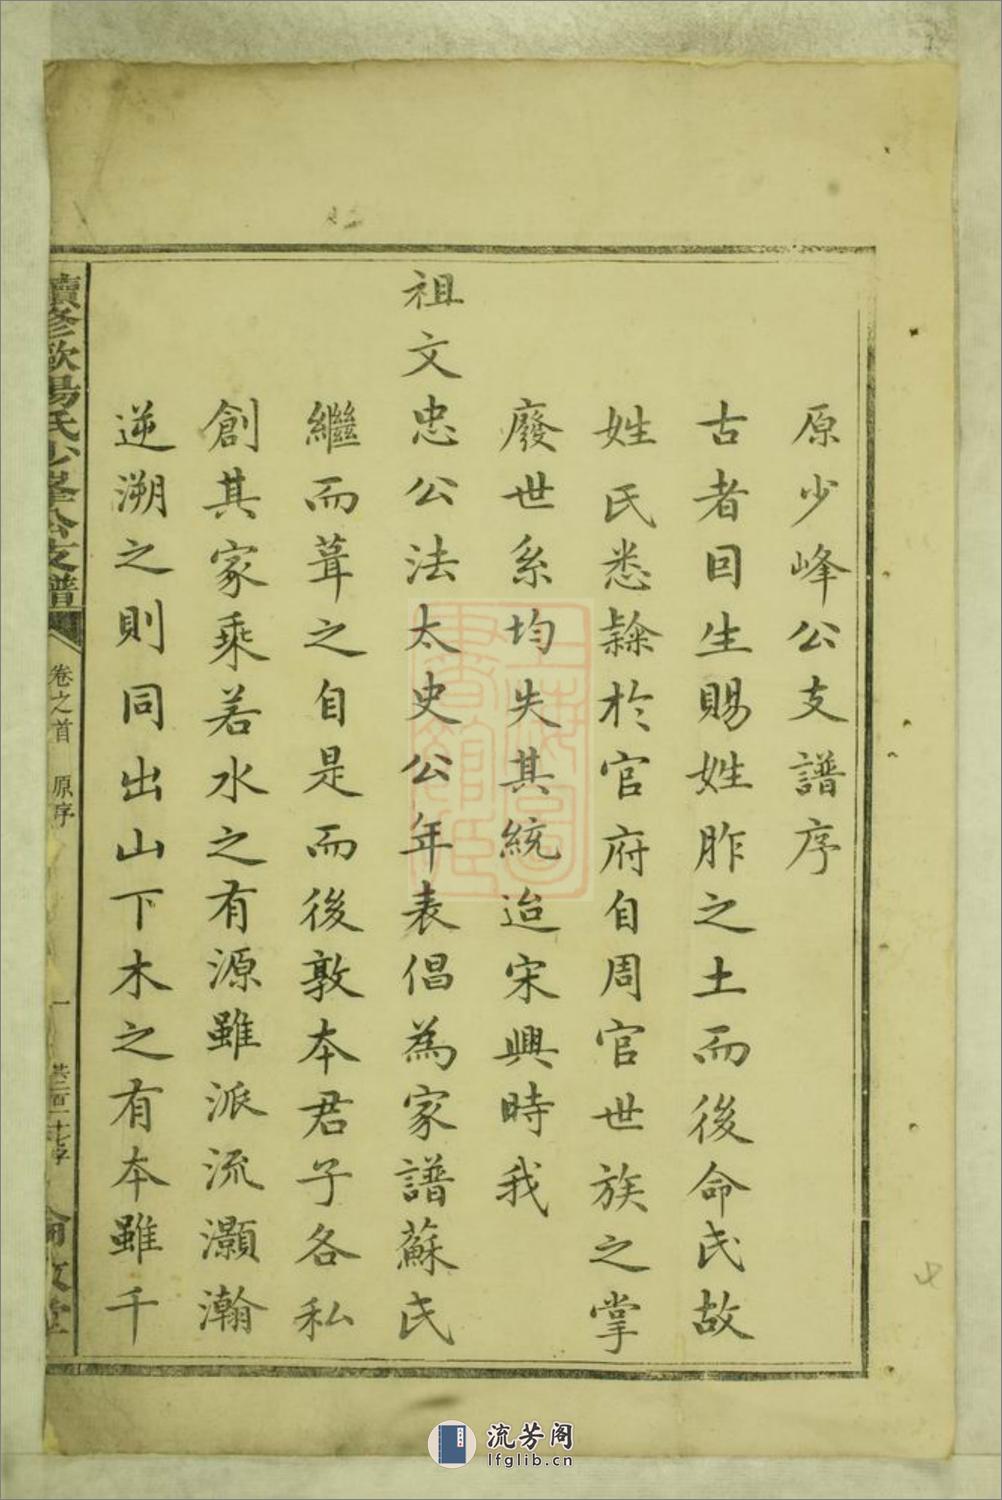 原少峰公支譜序
古者因生賜姓胙之土而後命氏故
姓氏悉隸於官府自周官世族之掌
廢世系均失其統迨宋興時我
祖文忠公法太史公年表倡為家譜蘇氏
繼而葺之自是而後敦本君子各私
創其家乘若水之有源雖派流灝瀚
逆溯之則同出山下木之有本雖千
續修歐陽氏少峯公支譜
卷之首 原序
一
流芳阁
lfglib.cn